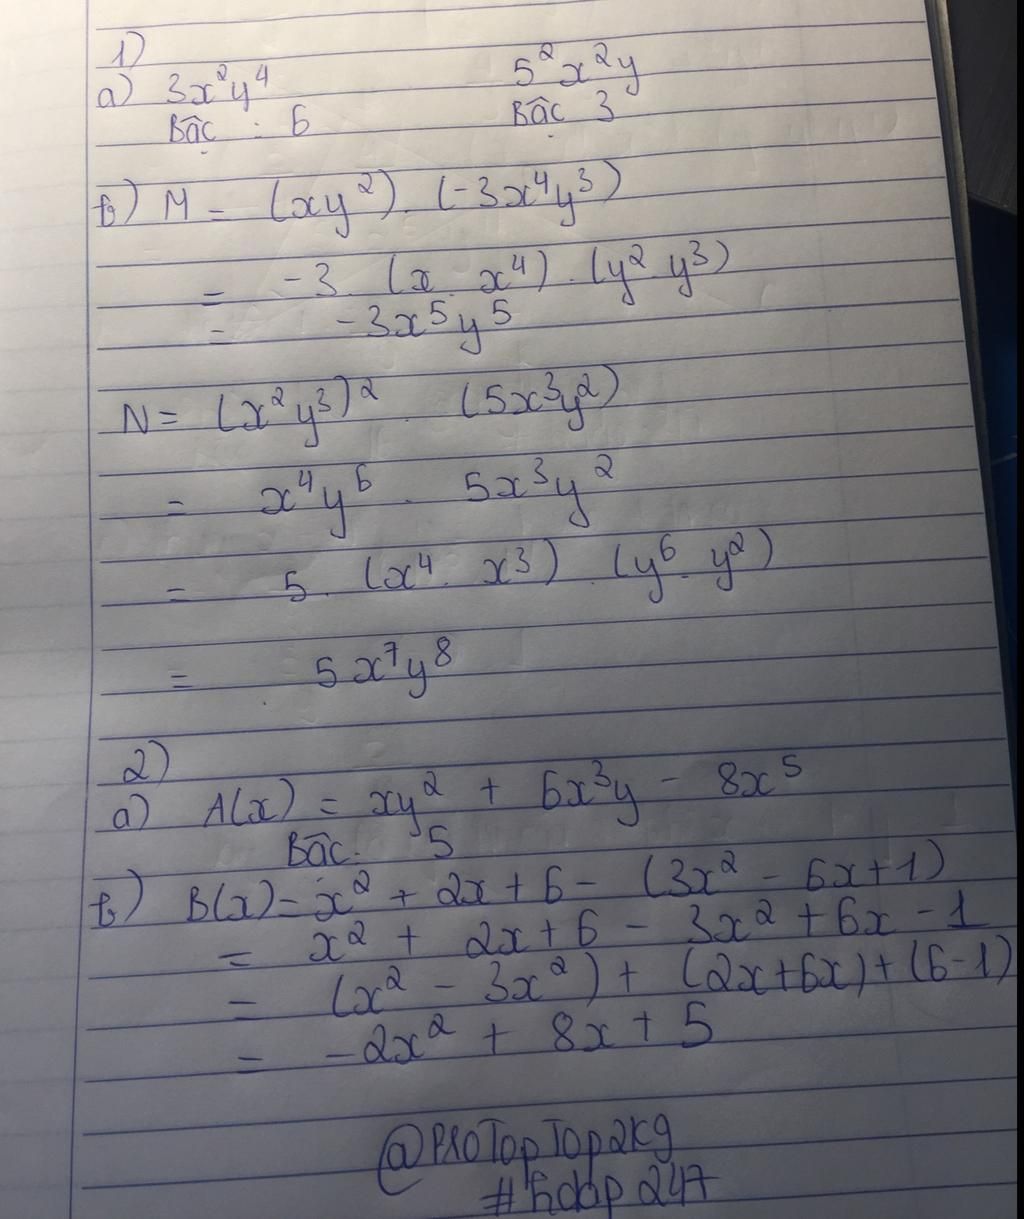 1)
a) 3x²y⁴ 5²x²y
Bậc : 6 Bậc 3
b) M = (xy²) . (-3x⁴y³)
= -3 . (x . x⁴) . (y² y³)
= -3x⁵y⁵
N = (x²y³)² . (5x³y²)
= x⁴y⁶ . 5x³y²
= 5 . (x⁴ . x³) . (y⁶ . y²)
= 5x⁷y⁸
2)
a) A(x) = xy² + 6x³y - 8x⁵
Bậc : 5
b) B(x) = x² + 2x + 6 - (3x² - 6x + 1)
= x² + 2x + 6 - 3x² + 6x - 1
= (x² - 3x²) + (2x + 6x) + (6 - 1)
= -2x² + 8x + 5
@PROTopTop2k9
#hdap247